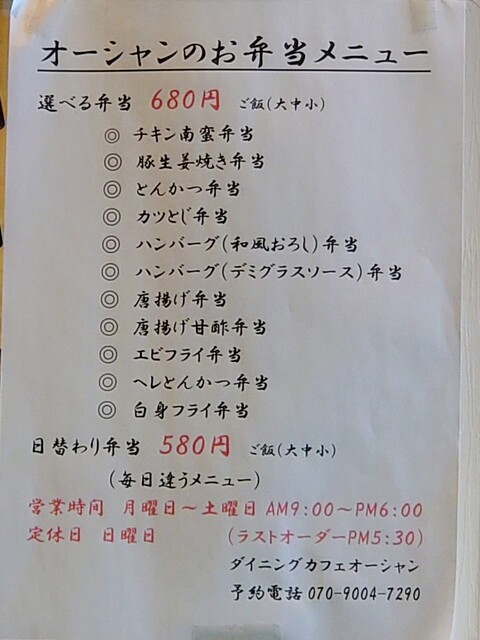 オーシャンのお弁当メニュー
選べる弁当 680円 ご飯(大中小)
◎ チキン南蛮弁当
◎ 豚生姜焼き弁当
◎ とんかつ弁当
◎ カツとじ弁当
◎ ハンバーグ(和風おろし)弁当
◎ ハンバーグ(デミグラスソース)弁当
◎ 唐揚げ弁当
◎ 唐揚げ甘酢弁当
◎ エビフライ弁当
◎ ヘレとんかつ弁当
◎ 白身フライ弁当
日替わり弁当 580円 ご飯(大中小)
(毎日違うメニュー)
営業時間 月曜日～土曜日 AM9:00～PM6:00
定休日 日曜日 (ラストオーダーPM5:30)
ダイニングカフェオーシャン
予約電話 070-9004-7290